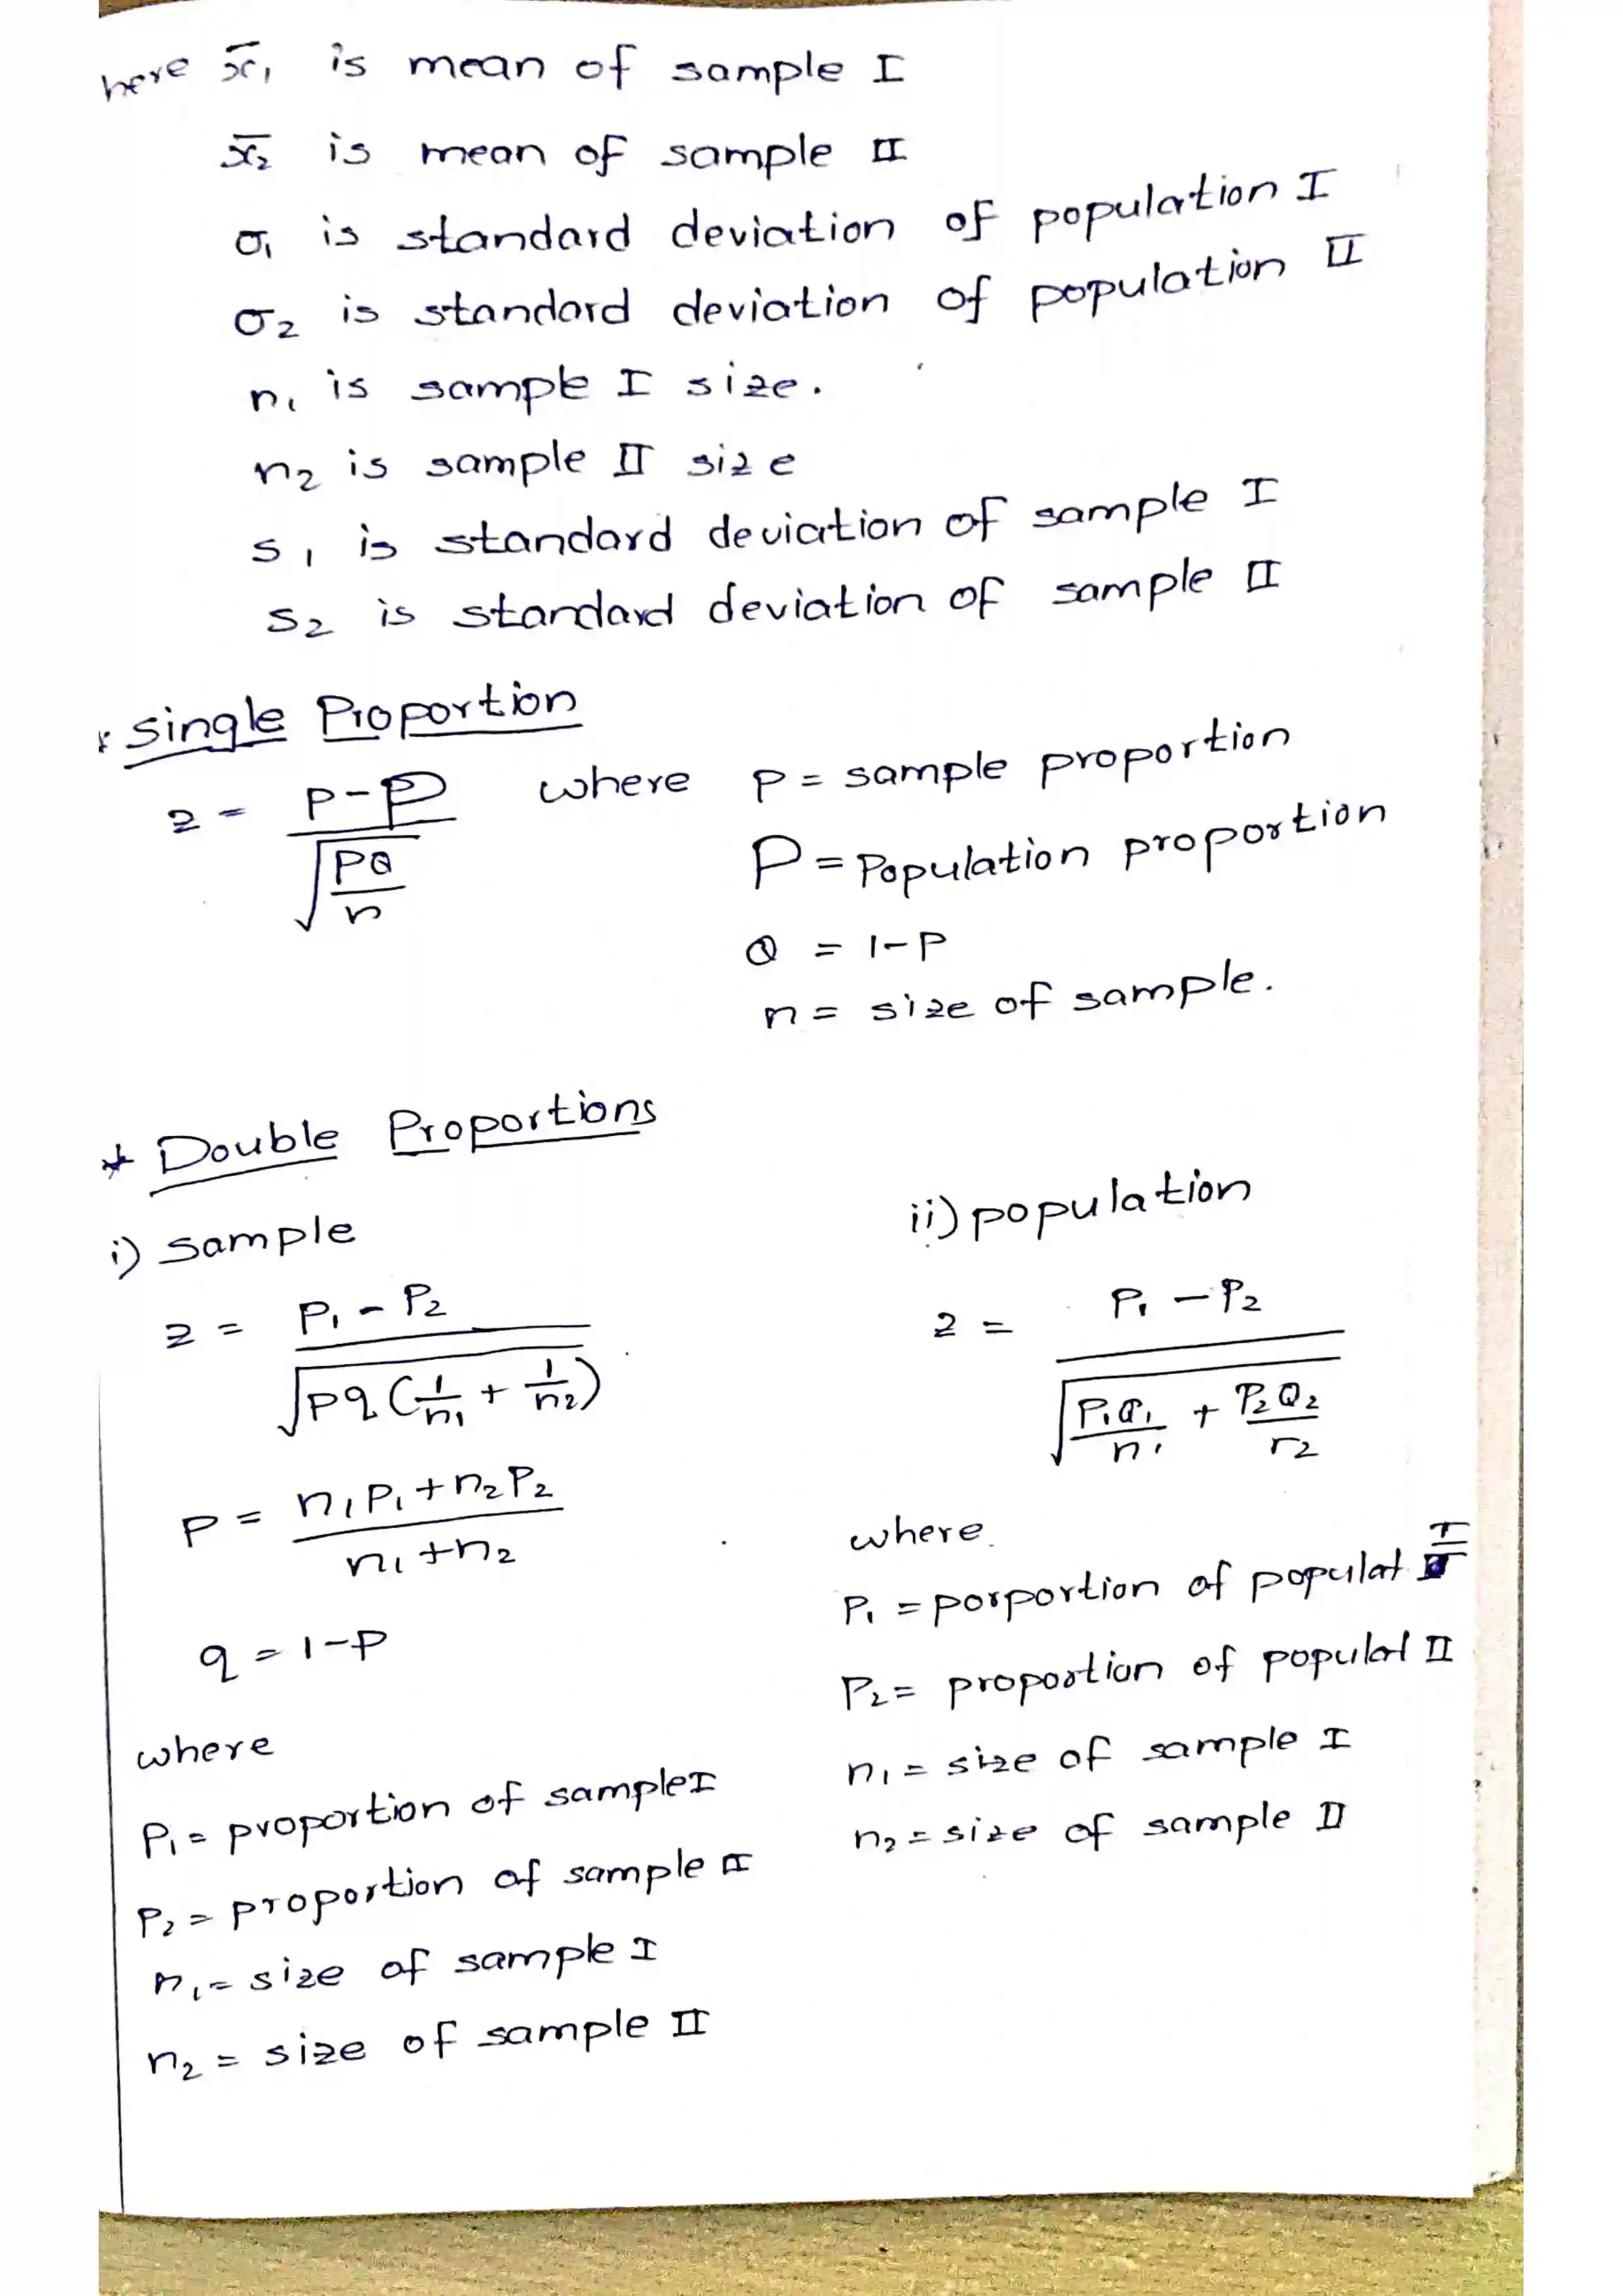 here x̄₁ is mean of sample I
x̄₂ is mean of sample II
σ₁ is standard deviation of population I
σ₂ is standard deviation of population II
n₁ is sample I size.
n₂ is sample II size
s₁ is standard deviation of sample I
s₂ is standard deviation of sample II
* Single Proportion
z = (p-P)/√(PQ/n) where p = sample proportion
P = Population proportion
Q = 1-P
n = size of sample.
* Double Proportions
i) sample
z = (P₁ - P₂)/√(pq(1/n₁ + 1/n₂))
p = (n₁P₁+n₂P₂)/(n₁+n₂)
q = 1-p
where
P₁ = proportion of sample I
P₂ = proportion of sample II
n₁ = size of sample I
n₂ = size of sample II
ii) population
z = (P₁ - P₂)/√(P₁Q₁/n₁ + P₂Q₂/r₂)
where
P₁ = porportion of populat I
P₂ = proportion of populat II
n₁ = size of sample I
n₂ = size of sample II